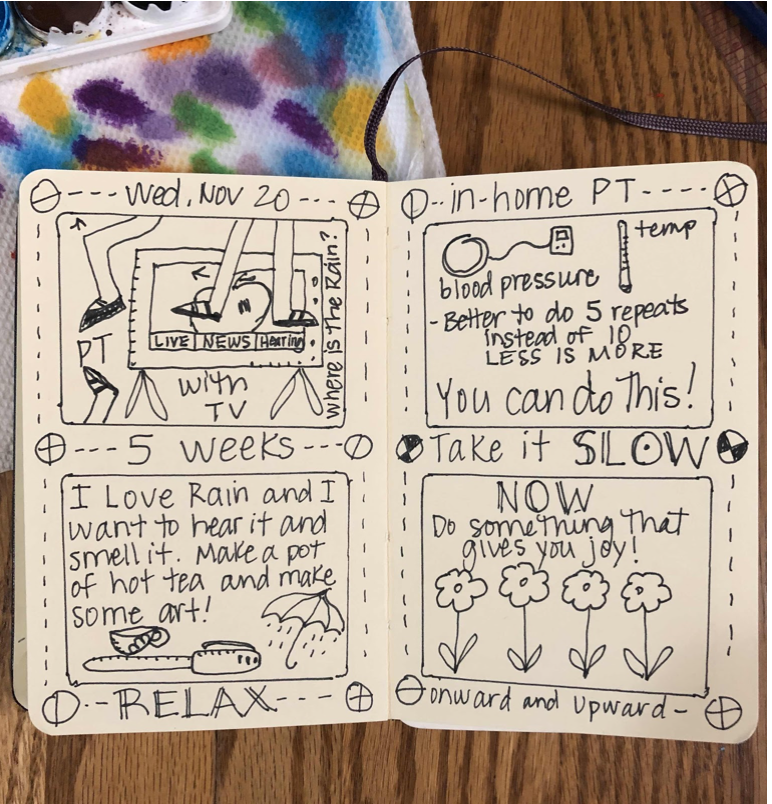 Wed, Nov 20
where is the Rain?
LIVE NEWS Hearing
PT
with
TV
5 weeks
I Love Rain and I
want to hear it and
smell it. Make a pot
of hot tea and make
some art!
RELAX
in-home PT
temp
blood pressure
- Better to do 5 repeats
instead of 10
LESS IS MORE
You can do this!
Take it SLOW
NOW
Do something that
gives you joy!
onward and upward